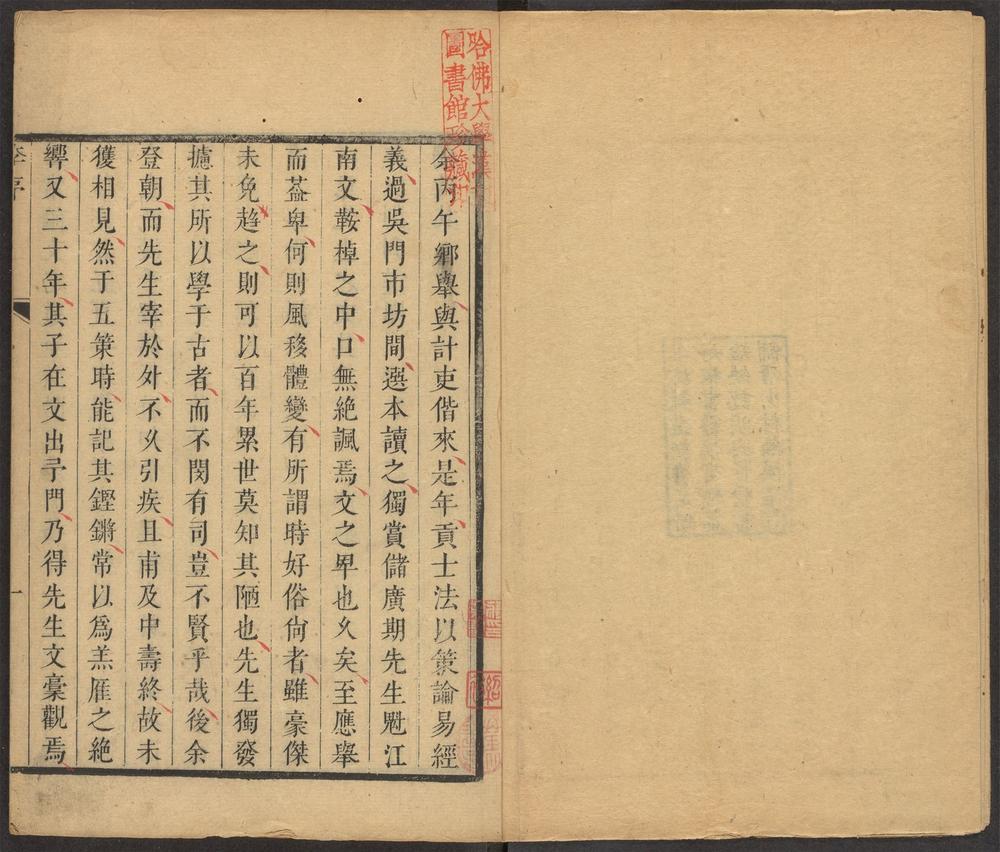 余丙午鄉舉與計吏偕來是年貢士法以策論易經
義過吳門市坊間選本讀之獨賞儲廣期先生魁江
南文鞍棹之中口無絶諷焉文之卑也久矣至應舉
而葢卑何則風移體變有所謂時好俗尙者雖豪傑
未免趋之則可以百年累世莫知其陋也先生獨發
攄其所以學于古者而不閔有司豈不賢乎哉後余
登朝而先生宰於外不久引疾且甫及中壽終故未
獲相見然于五策時能記其鏗鏘常以爲羔雁之絶
響又三十年其子在文出予門乃得先生文稾觀焉
李序
一
哈佛大學漢和
圖書館珍藏印